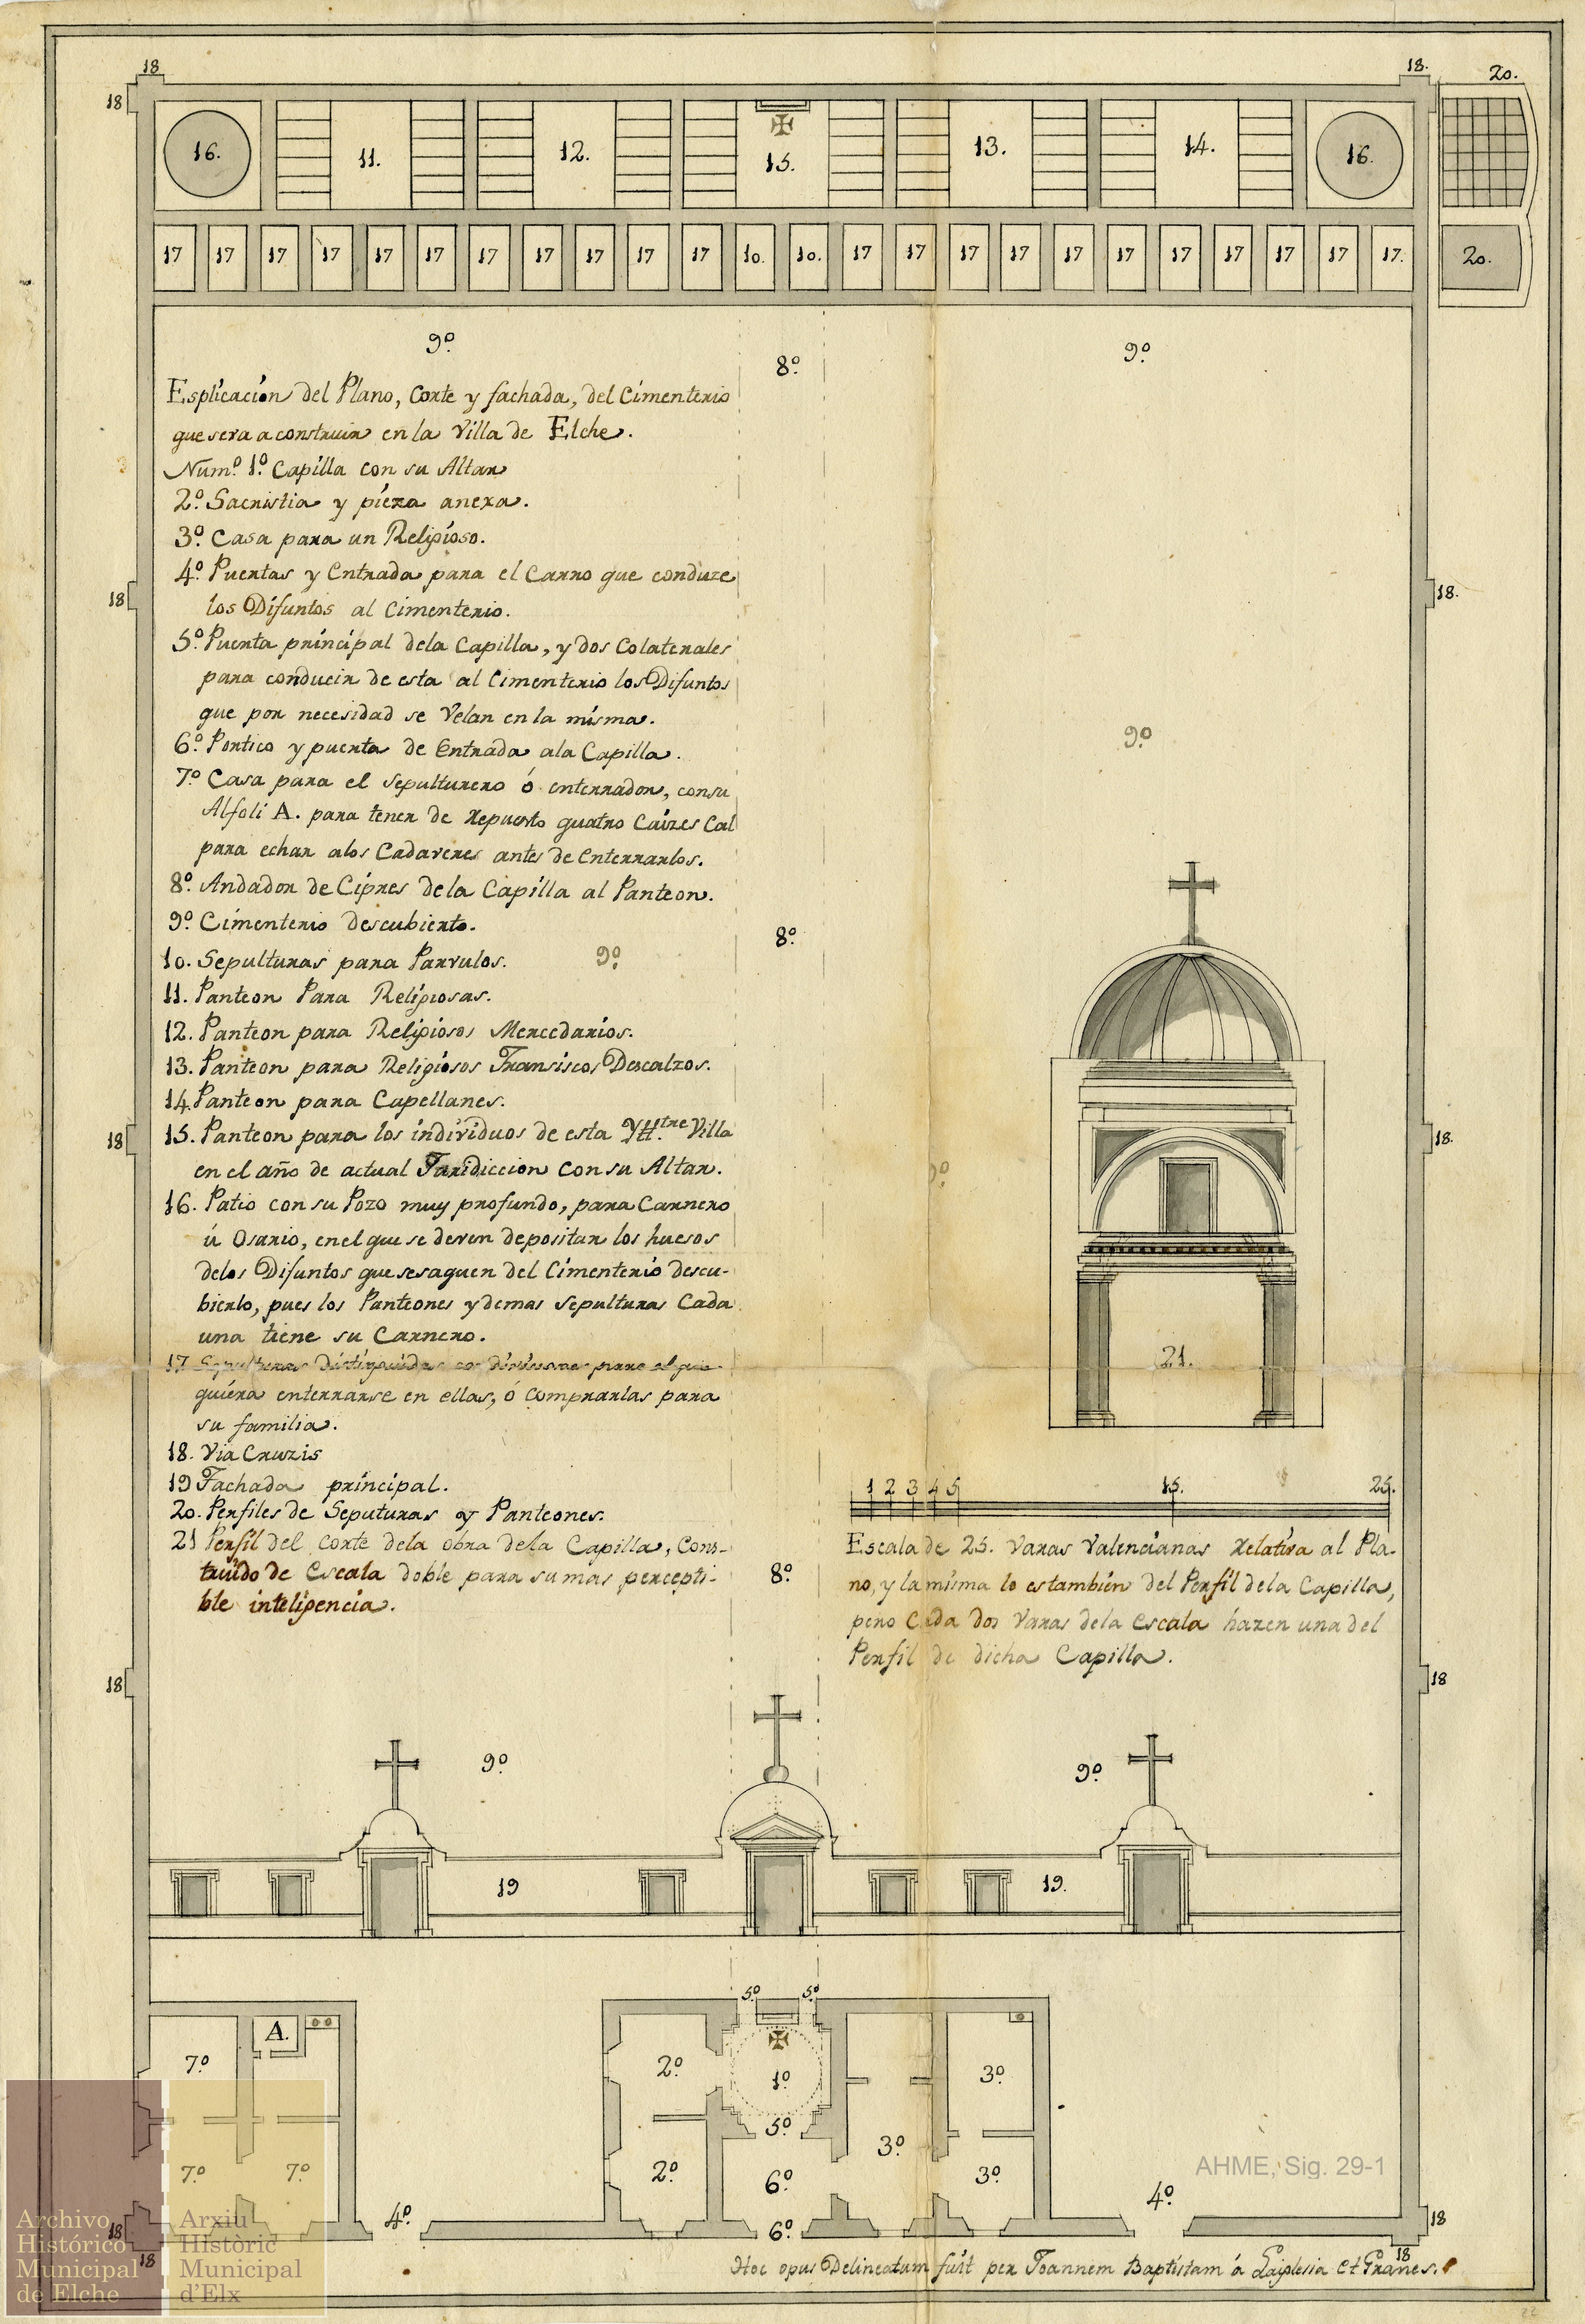 18
18
18.
20.
16.
11.
12.
15.
13.
14.
16.
17 17 17 17 17 17 17 17 17 17 17 10. 10. 17 17 17 17 17 17 17 17 17 17 17.
20.
9º
8º
9º
Esplicación del Plano, Corte y fachada, del Cimenterio
que sera a construir en la Villa de Elche.
Numº 1º Capilla con su Altar
2º Sacristia y pieza anexa.
3º Casa para un Religioso.
4º Puertas y Entrada para el Carro que conduze
los Difuntos al Cimenterio.
5º Puerta principal dela Capilla, y dos Colaterales
para conducir de esta al Cimenterio los Difuntos
que por necesidad se Velan en la misma.
6º Portico y puerta de Entrada ala Capilla.
7º Casa para el Sepulturero ó enterrador, consu
Alfoli A. para tener de repuesto quatro Caizes Cal
para echar alos Cadaveres antes de Enterrarlos.
8º Andador de Cipres de la Capilla al Panteon.
9º Cimenterio descubierto.
10. Sepulturas para Parvulos.
11. Panteon Para Religiosas.
12. Panteon para Religiosos Mercedarios.
13. Panteon para Religiosos Fransiscos Descalzos.
14 Panteon para Capellanes.
15. Panteon para los individuos de esta Yll.tre Villa
en el año de actual Juridiccion con su Altar.
16. Patio con su Pozo muy profundo, para Carnero
ú Osario, en el que se deven depositar los huesos
delos Difuntos que se saquen del Cimenterio descu-
bierto, pues los Panteones y demas Sepulturas Cada
una tiene su Carnero.
17 Sepulturas distinguidas para el que
quiera enterrarse en ellas, ó comprarlas para
su familia.
18. Via Cruzis
19 Fachada principal.
20. Perfiles de Seputuras y Panteones.
21 Perfil del corte dela obra dela Capilla, Cons-
truido de Escala doble para su mas percepti-
ble inteligencia.
18
18.
9º
8º
9º
9º
18
18.
21.
1 2 3 4 5 15. 25.
Escala de 25. Varas Valencianas relativa al Pla-
no, y la misma lo es tambien del Perfil dela Capilla,
pero Cada dos Varas dela escala hazen una del
Perfil de dicha Capilla.
8º
18
18
9º
9º
19
19.
5º 5º
7º
A.
2º
1º
3º
5º
7º
7º
2º
6º
3º
3º
AHME, Sig. 29-1
4º
6º
4º
18
18
18
18
Hoc opus Delineatum fuit per Joannem Baptistam á Laiglesia et Granes.
Archivo
Histórico
Municipal
de Elche
Arxiu
Històric
Municipal
d'Elx